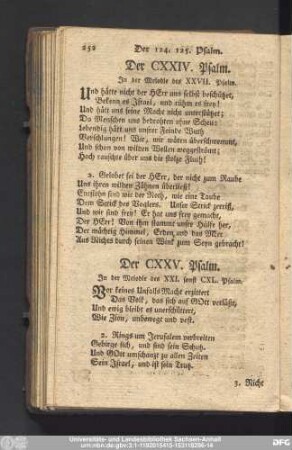 252 Der 124. 125. Psalm.
Der CXXIV. Psalm.
In der Melodie des XXVII. Psalm.
Und hätte nicht der HErr uns selbst beschützet,
Bekenn es Israel, und rühm es frey!
Und hätt uns seine Macht nicht unterstützet;
Da Menschen uns bedrohten ohne Scheu:
Lebendig hätt uns unsrer Feinde Wuth
Verschlungen! Wir, wir wären überschwemmt,
Und schier von wilden Wellen weggesträmt;
Hoch rauschte über uns die stolze Fluth!
2. Gelobet sei der HErr, der nicht zum Raube
Uns ihren wilden Zähnen überließ!
Entflohn sind wir der Noth, wie eine Taube
Dem Strick des Voglers. Unser Strick zerriß,
Und wir sind frey! Er hat uns frey gemacht,
Der HErr! Von ihm stammt unsre Hülfe her,
Der mächtig Himmel, Erden und das Meer
Aus Nichts durch seinen Wink zum Seyn gebracht!
Der CXXV. Psalm.
In der Melodie des XXI. sonst CXL. Psalm.
Vor keines Unfalls Macht erzittert
Das Volk, das sich auf GOtt verläßt,
Und ewig bleibt es unerschüttert,
Wie Zion, unbewegt und vest.
2. Rings um Jerusalem verbreiten
Gebirge sich, und sind sein Schutz.
Und GOtt umschanzt zu allen Zeiten
Sein Israel, und ist sein Trutz.
3. Nicht
Universitäts- und Landesbibliothek Sachsen-Anhalt
urn:nbn:de:gbv:3:1-1192015415-153118286-14
DFG